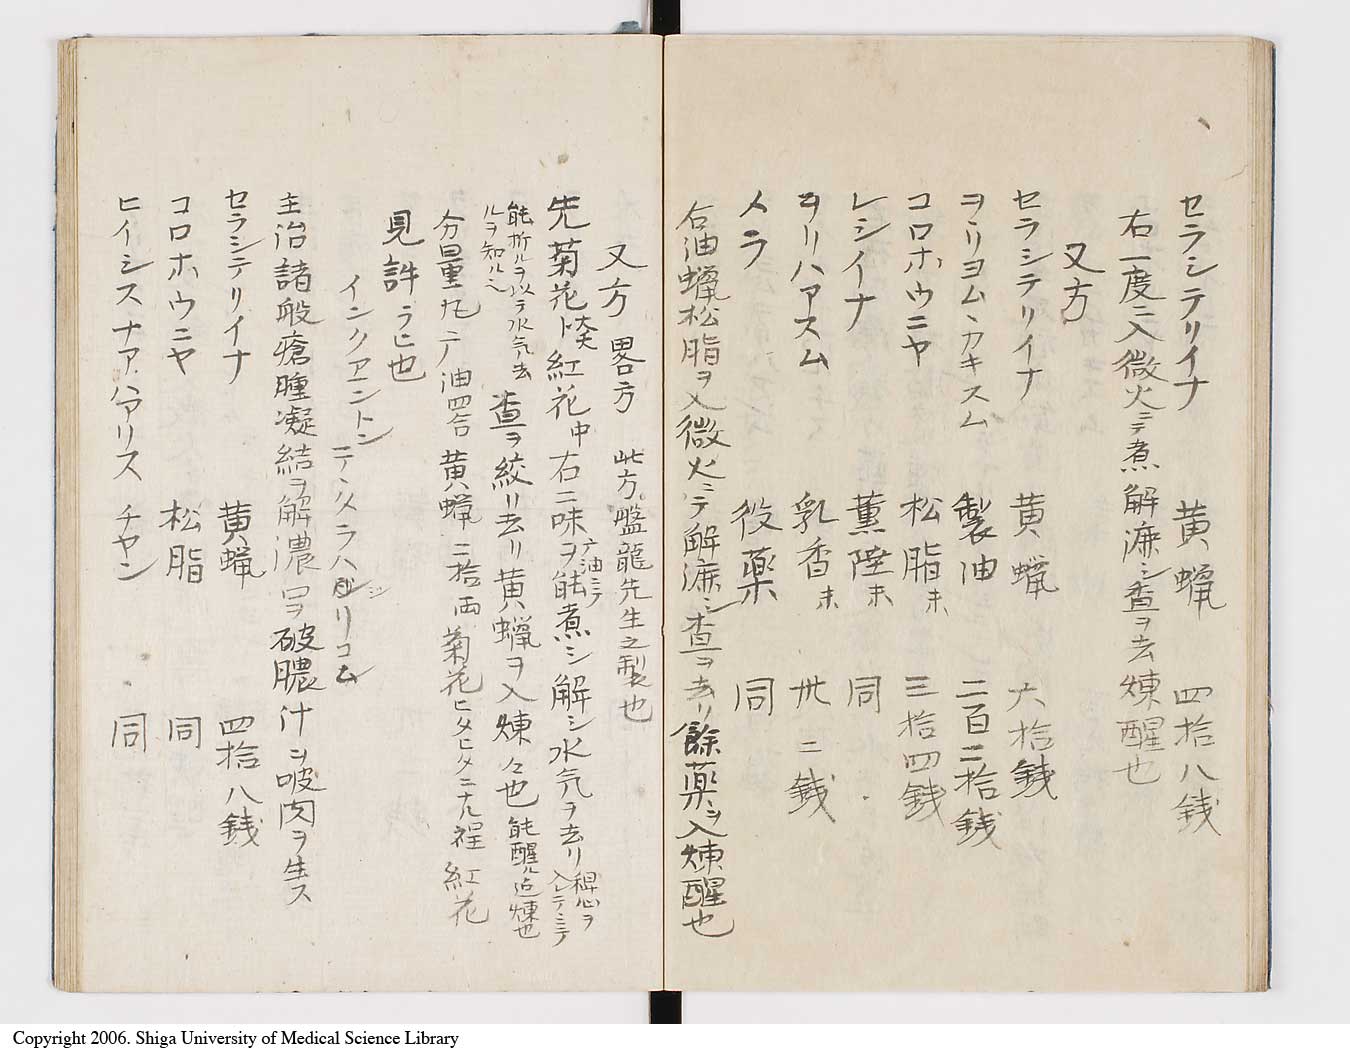 セラシテリイナ 黄蝋 四拾八銭
右一度ニ入微火ニテ煮解漉シ査ヲ去煉醒也
又方
セラシテリイナ 黄蝋 六拾銭
ヲリヨム、カキスム 製油 二百二拾銭
コロホウニヤ 松脂末 三拾四銭
レシイナ 薫陸末 同
ヲリハアスム 乳香末 卅二銭
メラ 役薬 同
右油蝋松脂ヲ入微火ニテ解漉シ査ヲ去リ餘薬ヲ入煉醒也
又方 畧方 此方盤龍先生之製也
先菊花 紅花中右二味ヲ油ニテ能煮シ解シ水気ヲ去リ 稈心ヲ入レテミテ
能折ルヲ以テ水気去ルヲ知ルヘシ 査ヲ絞リ去リ黄蝋ヲ入煉々也 能醒ル迄煉也
分量凡テ油四合 黄蝋二拾両 菊花ヒタヒタニナル程 紅花
見計ラヒ也
インクアントン テンメラハシリコム
主治諸般瘡腫凝結ヲ解濃口ヲ破膿汁ヲ吸肉ヲ生ス
セラシテリイナ 黄蝋 四拾八銭
コロホウニヤ 松脂 同
ヒイシスナアハアリス チヤン 同
Copyright 2006. Shiga University of Medical Science Library